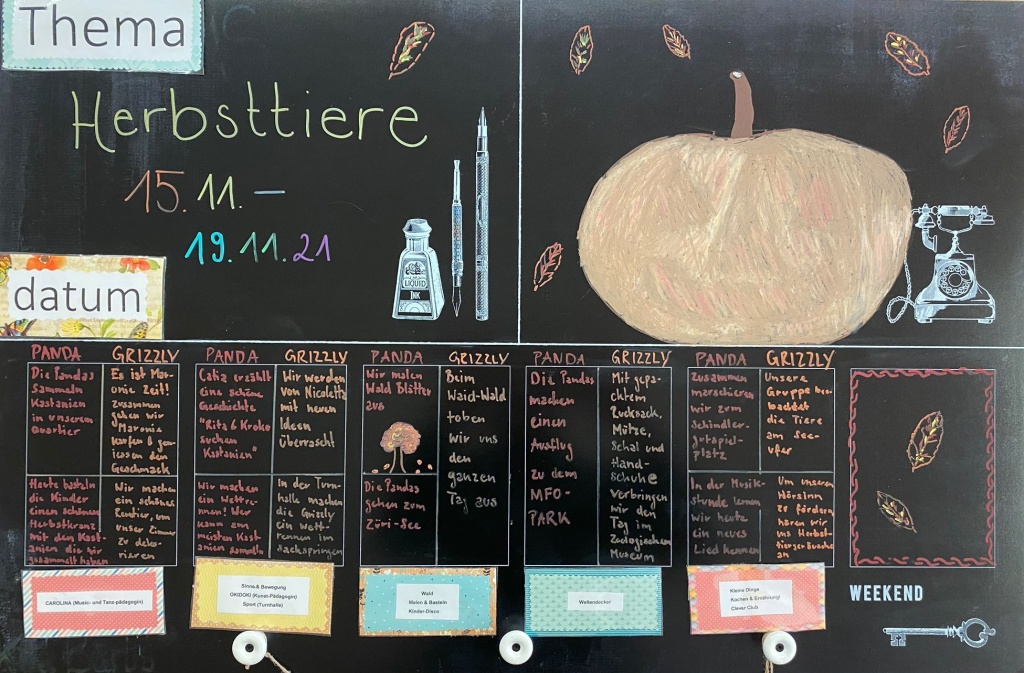 Thema
Herbsttiere
15.11. –
19.11.21
datum
LIQUID
INK
PANDA
GRIZZLY
Die Pandas
sammeln
Kastanien
in unserem
Quartier
Es ist Mar-
onie Zeit!
Zusammen
gehen wir
Maronie
kaufen & gen-
iessen den
Geschmack
Heute basteln
die Kinder
einen schönen
Herbstkranz
mit den Kast-
anien die wir
gesammelt haben
Wir machen
ein schönes
Rentier, um
unser Zimmer
zu deko-
rieren
CAROLINA (Musik- und Tanz-pädagogin)
PANDA
GRIZZLY
Catia erzählt
eine schöne
Geschichte
"Rita & Kroko
suchen
Kastanien"
Wir werden
von Nicoletta
mit neuen
Ideen
überrascht
Wir machen
ein Wettre-
nnen! Wer
kann am
meisten Kast-
anien sammeln
In der Turn-
halle machen
die Grizzly
ein Wett-
rennen im
Sackspringen
Sinne & Bewegung
OKIDOKI (Kunst-Pädagogin)
Sport (Turnhalle)
PANDA
GRIZZLY
Wir malen
Wald Blätter
aus
Die Pandas
gehen zum
Züri-See
Beim
Waid-Wald
toben
wir uns
den
ganzen
Tag aus
Wald
Malen & Basteln
Kinder-Disco
PANDA
GRIZZLY
Die Pandas
machen
einen
Ausflug
zu dem
MFO-
PARK
Mit gepa-
cktem
Rucksack,
Mütze,
Schal und
Hand-
schuhe
verbringen
wir den
Tag im
Zoologischen
Museum
Weltendecker
PANDA
GRIZZLY
Zusammen
marschieren
wir zum
Schindler-
gutspiel-
platz
Unsere
Gruppe beo-
bachtet
die Tiere
am See-
ufer
In der Musik-
stunde lernen
wir heute
ein neues
Lied kennen
Um unseren
Hörsinn
zu fördern
hören wir
uns Herbst-
tiergeräusche
an
Kleine Dinge
Kochen & Ernährung/
Clever Club
WEEKEND